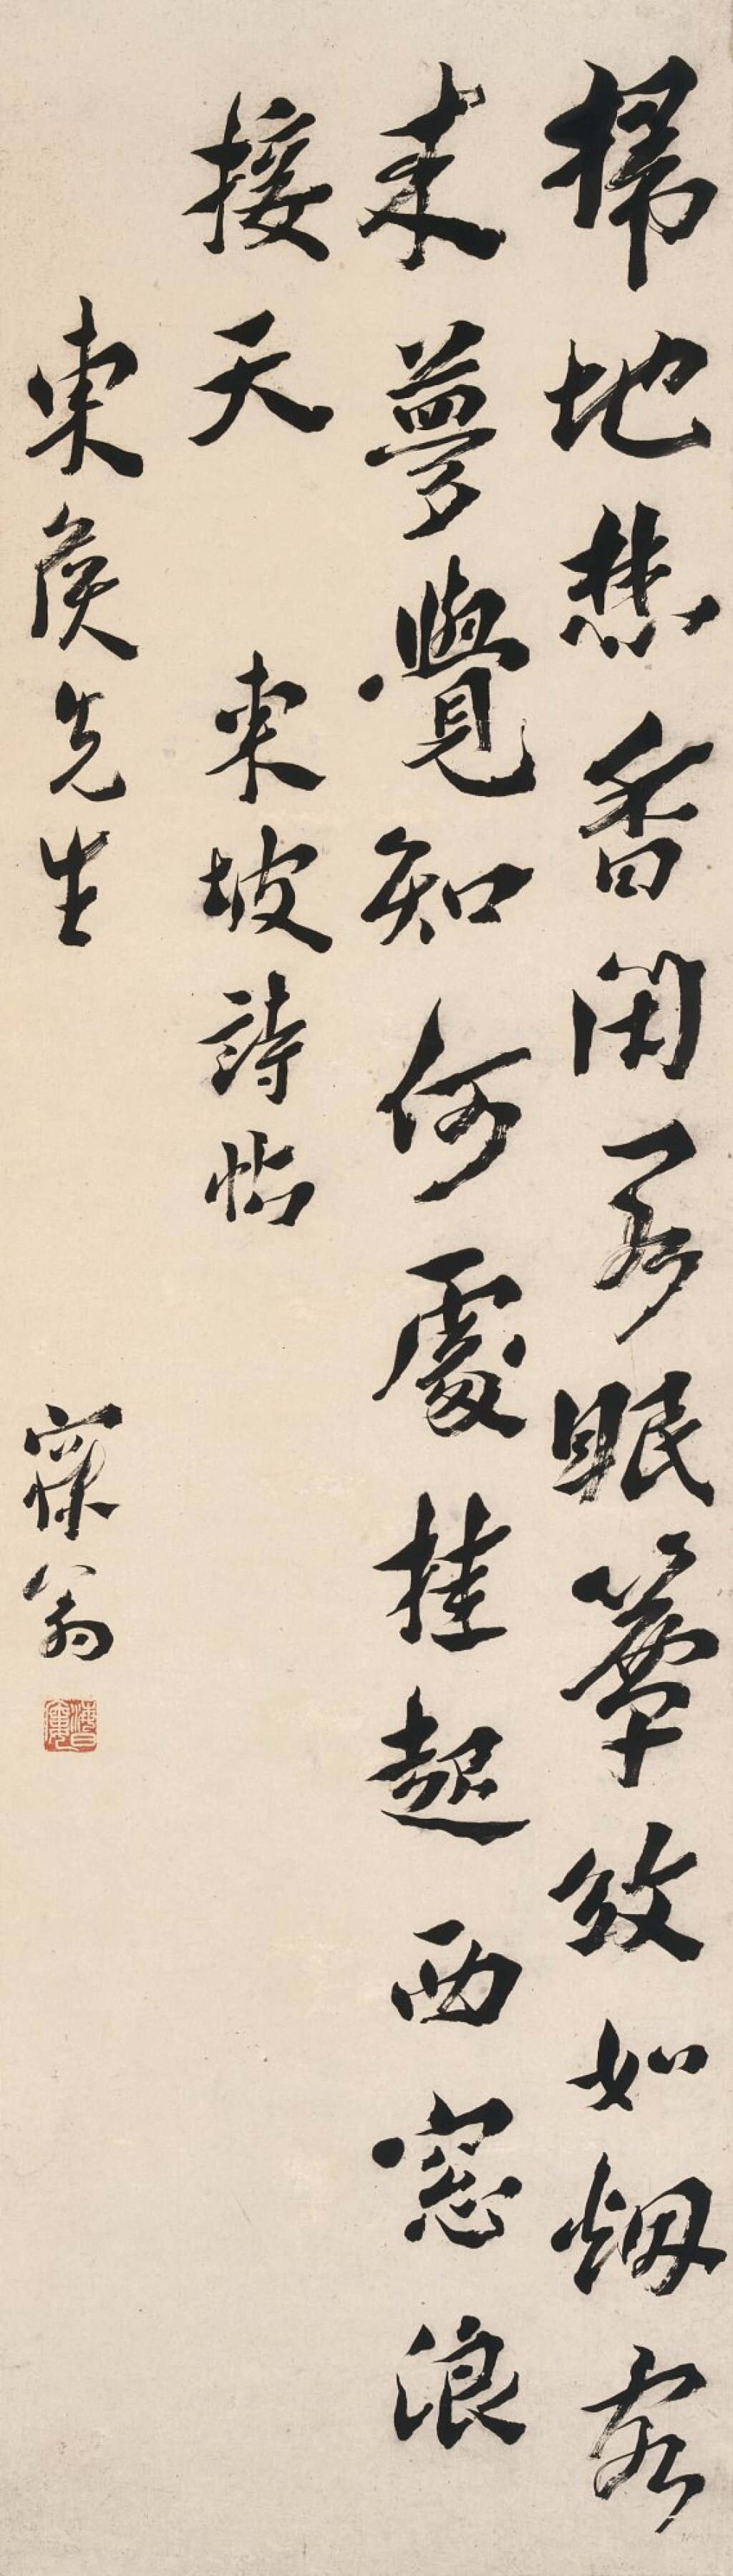 掃地焚香閉閣眠簟紋如烟客
来夢覺知何處挂起西窓浪
接天 東坡詩帖
東侯先生 寐翁
海日廔